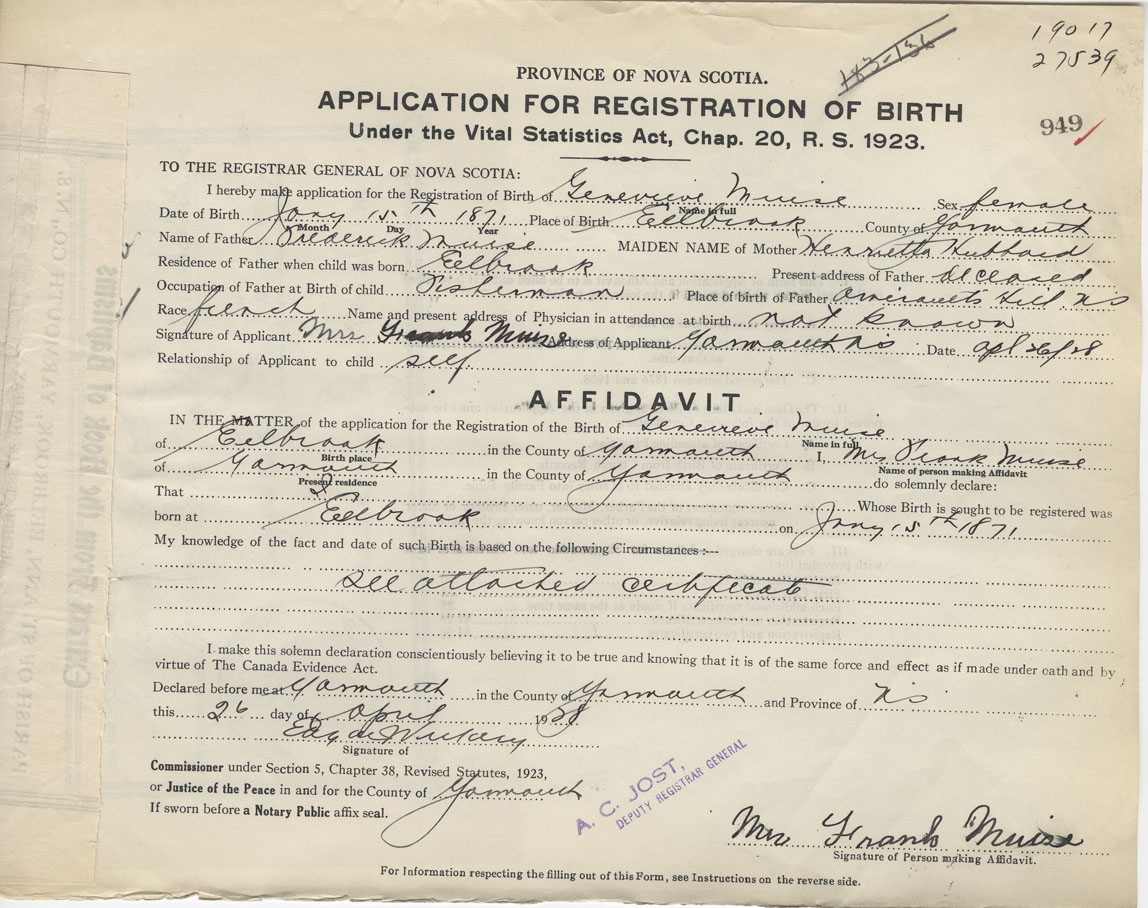 19017
27539
183-136
949
PROVINCE OF NOVA SCOTIA.
APPLICATION FOR REGISTRATION OF BIRTH
Under the Vital Statistics Act, Chap. 20, R. S. 1923.
TO THE REGISTRAR GENERAL OF NOVA SCOTIA:
I hereby make application for the Registration of Birth of Genevieve Muise Sex female
Name in full
Date of Birth Jany 15th 1871 Place of Birth Eelbrook County of Yarmouth
Month Day Year
Name of Father Frederick Muise MAIDEN NAME of Mother Henrietta Hubbard
Residence of Father when child was born Eelbrook Present address of Father deceased
Occupation of Father at Birth of child Fisherman Place of birth of Father Amiraults Hill NS
Race french Name and present address of Physician in attendance at birth not known
Signature of Applicant Mrs Frank Muise Address of Applicant Yarmouth NS Date Apl 26/28
Relationship of Applicant to child self.
AFFIDAVIT
IN THE MATTER of the application for the Registration of the Birth of Genevieve Muise
Name in full
of Eelbrook in the County of Yarmouth I, Mrs Frank Muise
Birth place Name of person making Affidavit
of Yarmouth in the County of Yarmouth do solemnly declare:
Present residence
That I Whose Birth is sought to be registered was
born at Eelbrook on Jany 15th 1871
My knowledge of the fact and date of such Birth is based on the following Circumstances :---
see attached certificate
I make this solemn declaration conscientiously believing it to be true and knowing that it is of the same force and effect as if made under oath and by
virtue of The Canada Evidence Act.
Declared before me at Yarmouth in the County of Yarmouth and Province of NS
this 26 day of April 1928
Signature of
Commissioner under Section 5, Chapter 38, Revised Statutes, 1923,
or Justice of the Peace in and for the County of Yarmouth
If sworn before a Notary Public affix seal.
A. C. JOST,
DEPUTY REGISTRAR GENERAL
Mrs Frank Muise
Signature of Person making Affidavit.
For Information respecting the filling out of this Form, see Instructions on the reverse side.